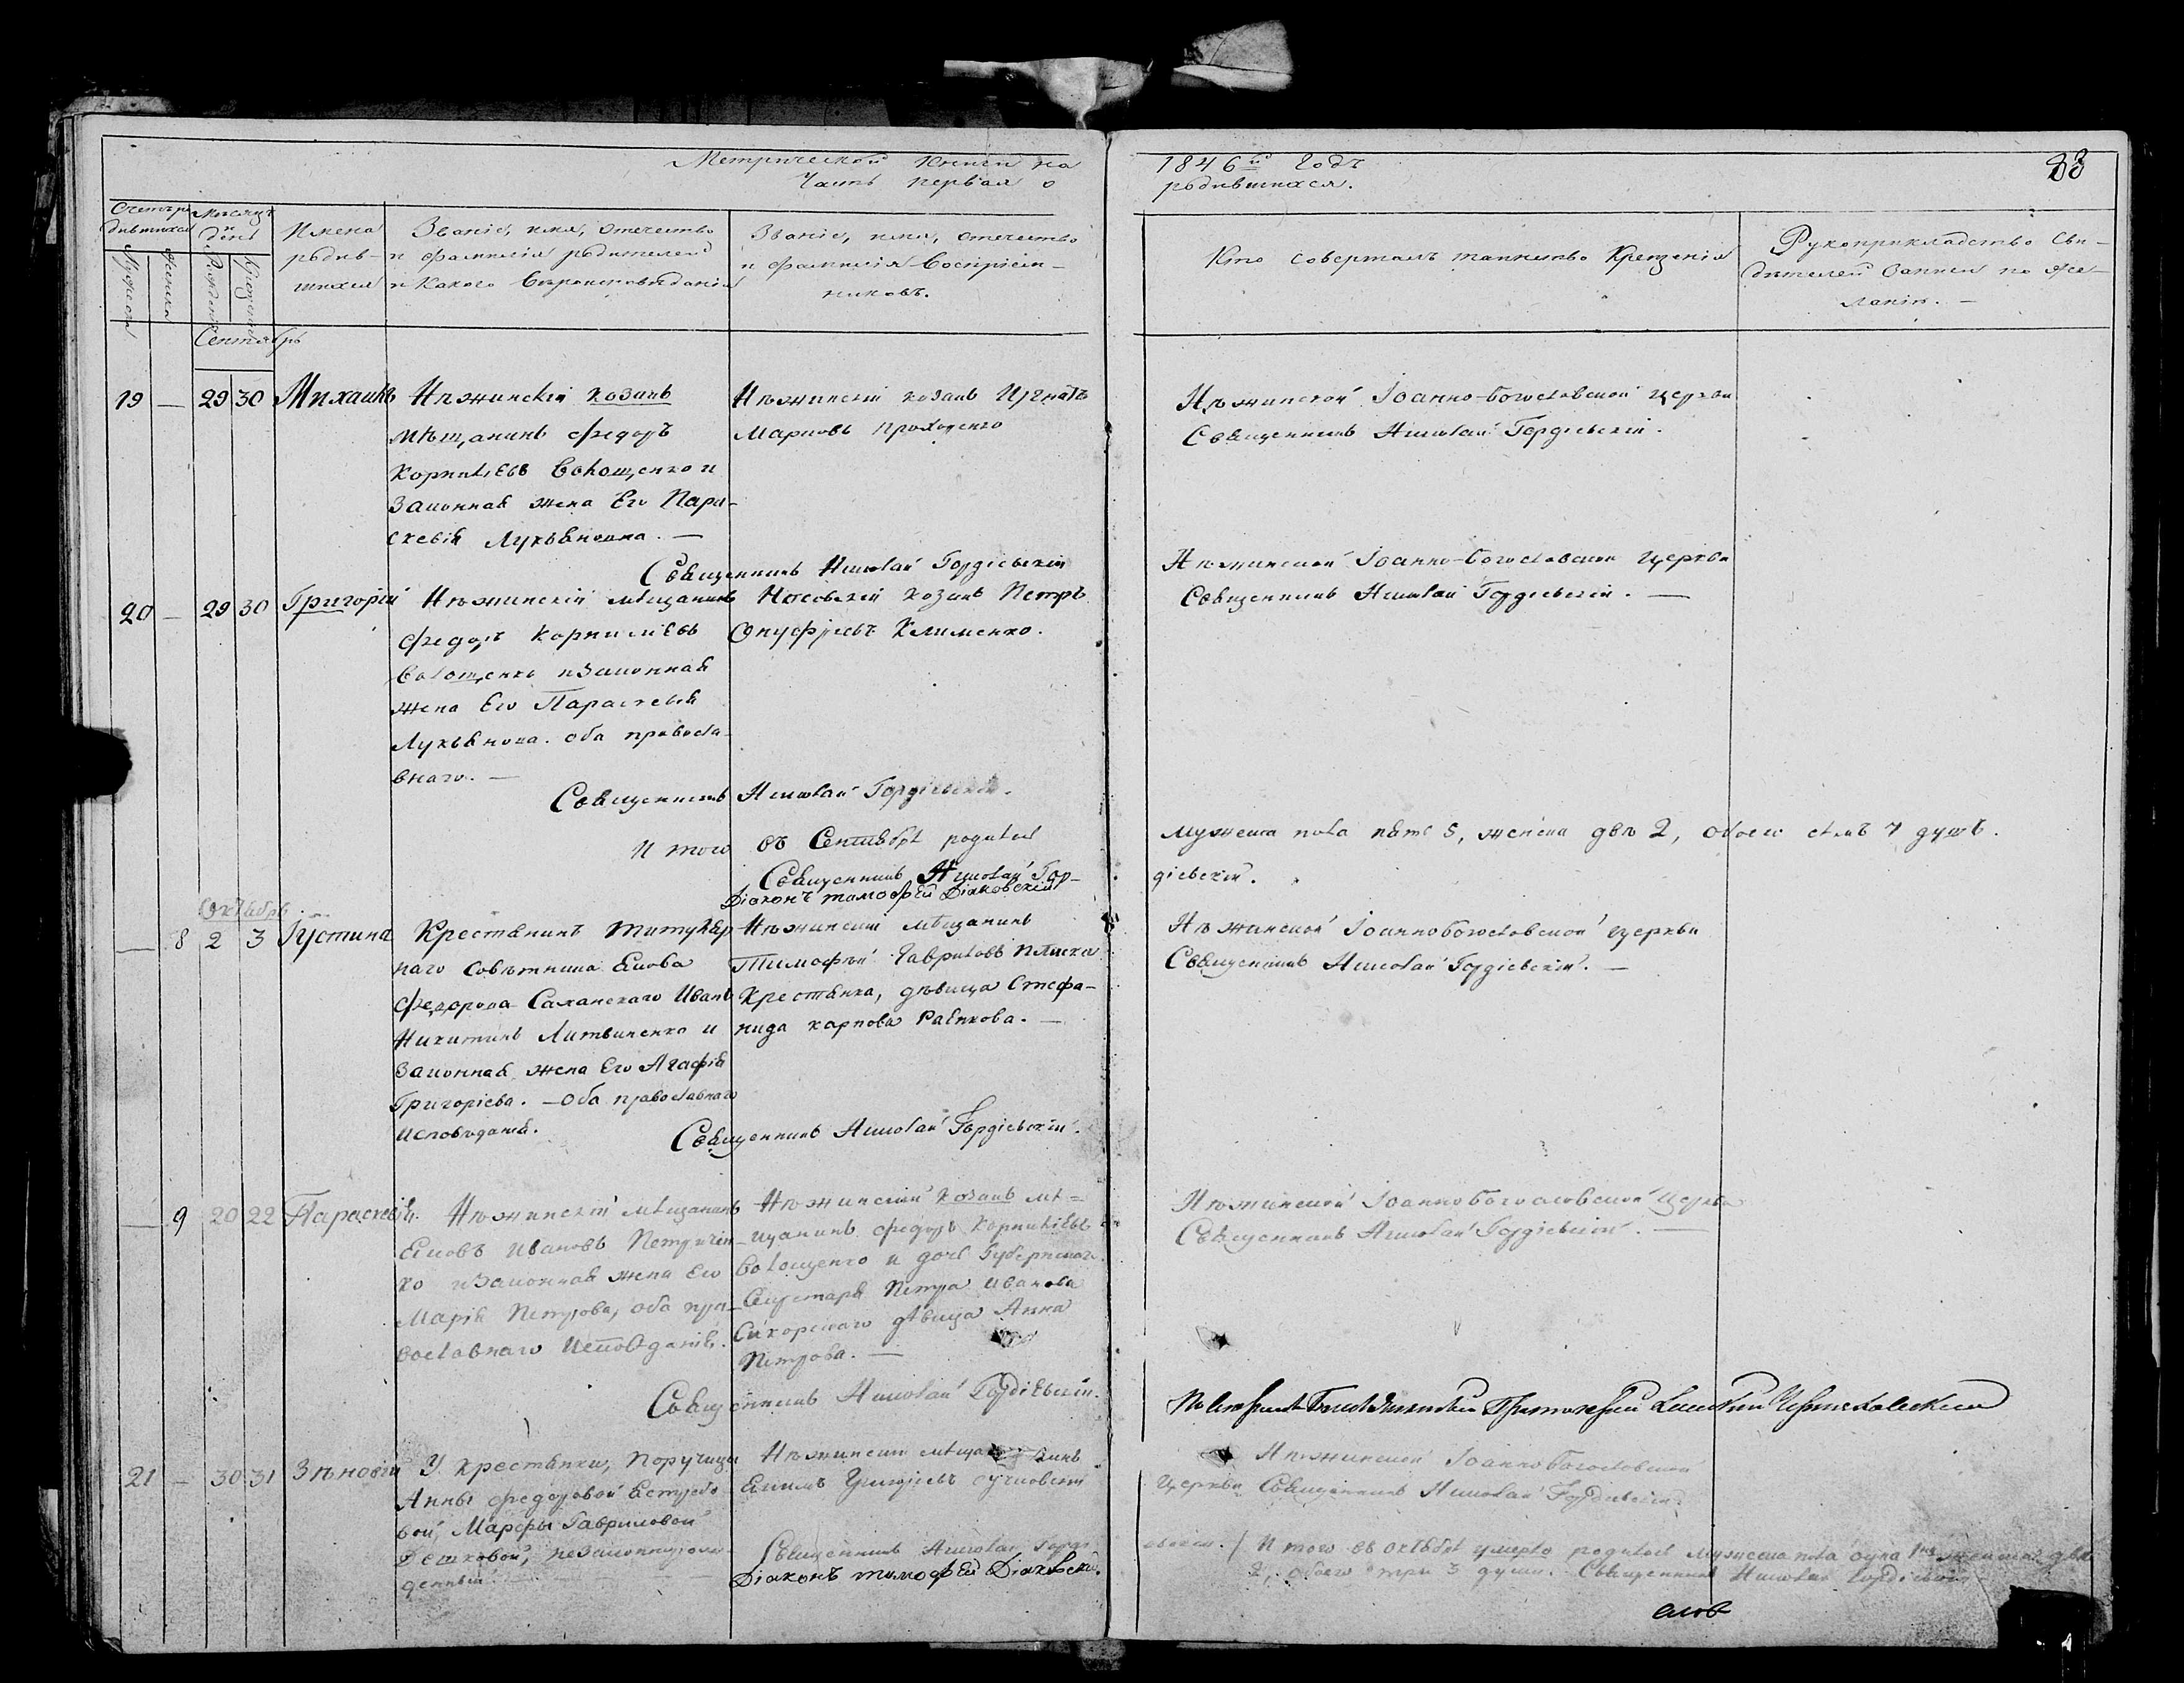 Метрической книги на 1846й годъ
Часть первая о родившихся.
88
Счетъ родившихся
Мужеска
Женска
Мѣсяцъ и день
Рожденія
Крещенія
Имена родив-
шихся
Званіе, имя, отечество
и фамилія родителей
и какого вѣроисповѣданія
Званіе, имя, отечество
и фамилія воспріем-
никовъ.
Кто совершалъ таинство крещенія
Рукоприкладство сви-
дѣтелей записи по же-
ланію. —
Сентябрь
19 — 29 30 Михаилъ
Нѣжинскій козакъ
мѣщанинъ Федоръ
Корниліевъ Волощенко и
законная жена Его Пара-
скевія Лукьяновна. —
Нѣжинскій козакъ Игнатъ
Марковъ Проходенко
Нѣжинской Іоанно-Богословской церкви
Священникъ Николай Гордіевскій.
Священникъ Николай Гордіевскій
20 — 29 30 Григорій
Нѣжинскій мѣщанинъ
Федоръ Корниліевъ
Волощенко и законная
жена Его Параскевія
Лукьянова. оба правосла-
внаго. —
Носовскій козакъ Петръ
Онуфріевъ Клименко.
Нѣжинской Іоанно-Богословской церкви
Священникъ Николай Гордіевскій. —
Священникъ Николай Гордіевскій.
И того въ Сентябрѣ родилось мужеска пола пять 5, женска двѣ 2, обоего семъ 7 душъ.
Священникъ Николай Гор-
діевскій.
Діаконъ Тимофей Діаковскій
Октябрь
— 8 2 3 Іустина
Крестьянинъ титуляр
наго совѣтника Якова
Федорова Саханскаго Иванъ
Никитинъ Литвиненко и
законная жена Его Агафія
Григоріева. — Оба православнаго
исповѣданія.
Нѣжинскій мѣщанинъ
Тимофѣй Гавриловъ
Крестьянка, дѣвица Стефа-
нида Карпова
Нѣжинской Іоаннобогословской церкви
Священникъ Николай Гордіевскій. —
Священникъ Николай Гордіевскій.
— 9 20 22 Параскевія.
Нѣжинскій мѣщанинъ
Яковъ Ивановъ Петричен-
ко и законная жена Его
Марія Петрова, оба пра-
вославнаго исповѣданія.
Нѣжинскій козакъ мѣ-
щанинъ Федоръ Корниліевъ
Волощенко и дочь Губернскаго
Секретаря Петра Иванова
Сикорскаго дѣвица Анна
Петрова. —
Нѣжинской Іоаннобогословской церкви
Священникъ Николай Гордіевскій. —
Священникъ Николай Гордіевскій.
21 — 30 31 Зѣновій
У крестьянки, поручицы
Анны Федоровой Ястребо
вой, Марфы Гавриловой
незаконнорож-
денный
Нѣжинскій мѣщанинъ
Нѣжинской Іоаннобогословской
церкви Священникъ Николай Гордіевскій.
Священникъ Николай Горді
евскій.
Діаконъ Тимофей Діаковскій.
И того въ октябрѣ родилось мужеска пола одна 1 женска двѣ
2, обоего три 3 души. Священникъ Николай Гордіевскій